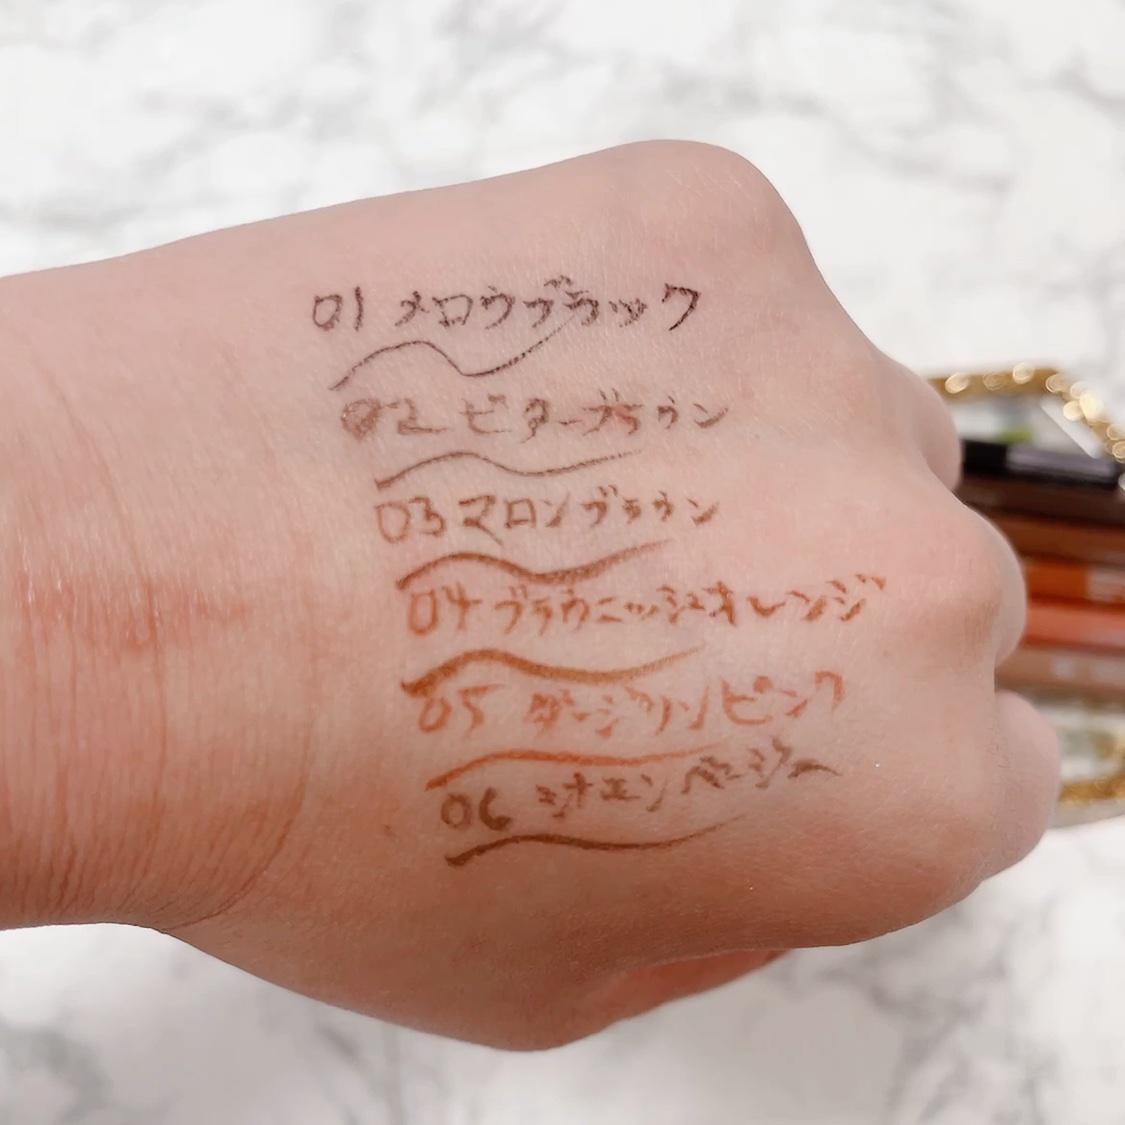 01 メロウブラック
02 ビターブラウン
03 マロンブラウン
04 ブラウニッシュオレンジ
05 ダージリンピンク
06 ミオエンベージュ